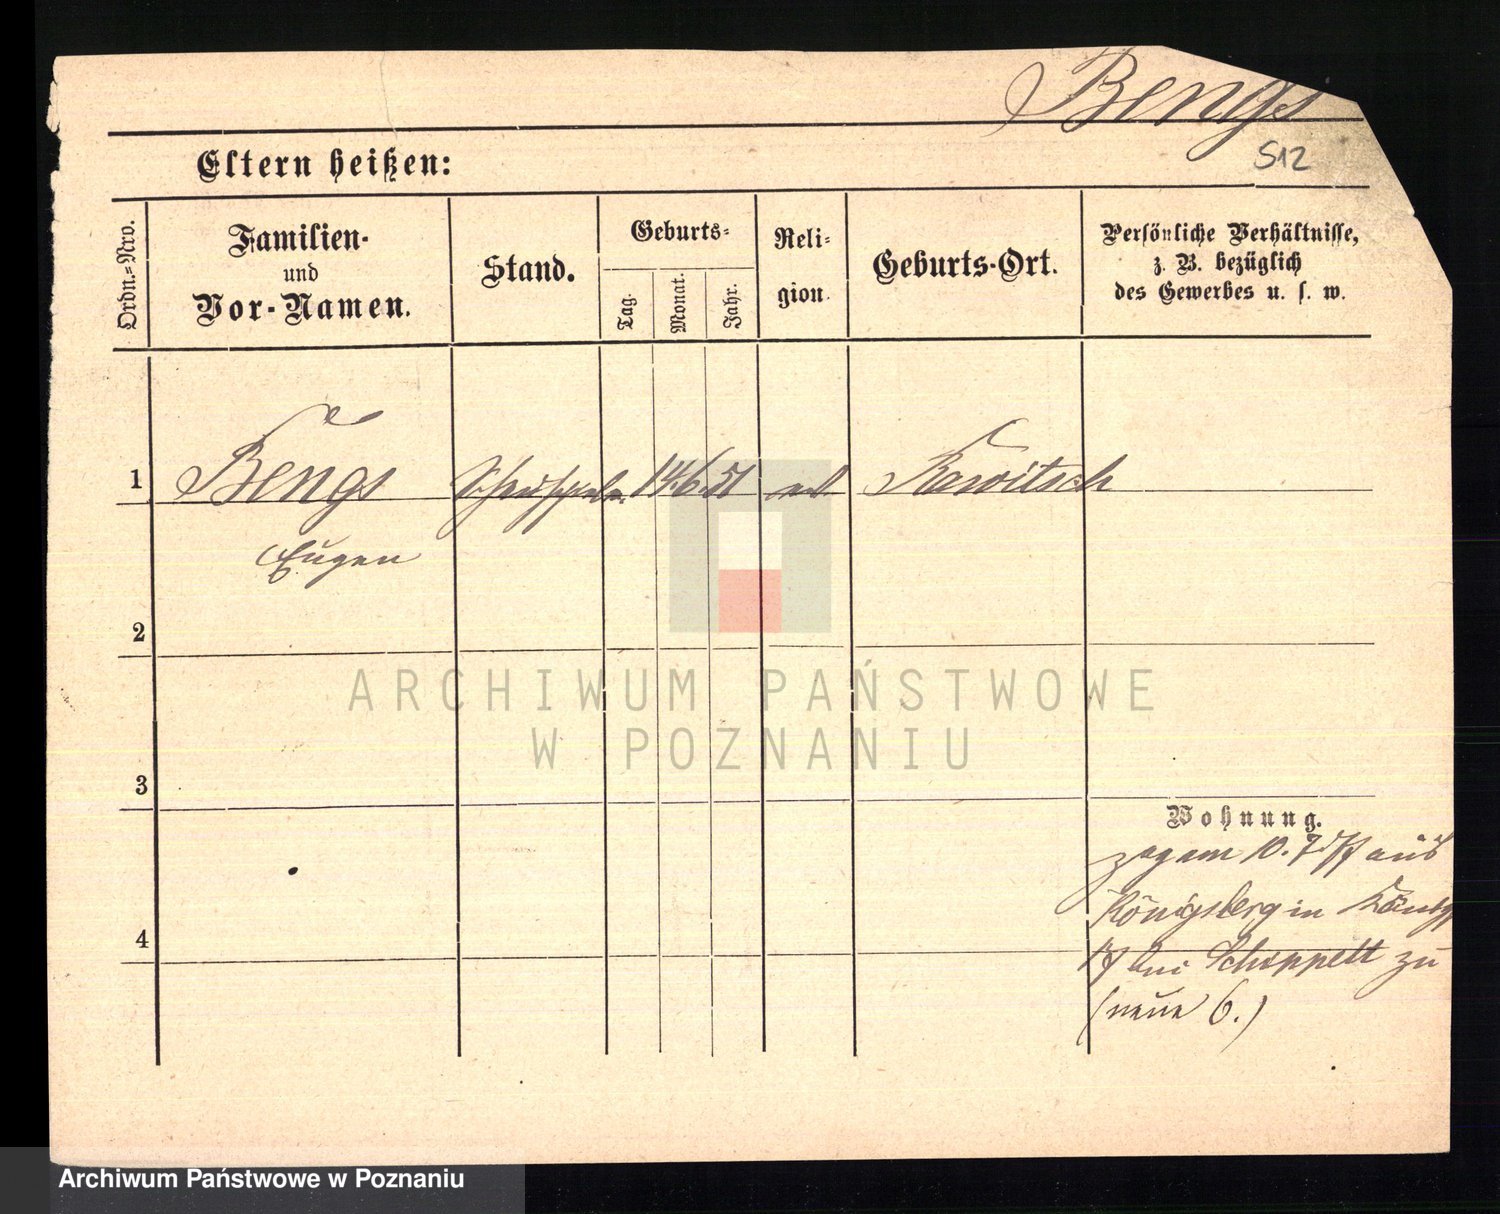 Bengs
512
Eltern heißen:
Ordn.=Nro.
Familien-
und
Vor-Namen.
Stand.
Geburts=
Tag.
Monat.
Jahr.
Reli=
gion.
Geburts-Ort.
Persönliche Verhältnisse,
z. B. bezüglich
des Gewerbes u. s. w.
1 Bengs 14. 6. 51 Rawitsch
Eugen
2
3
Wohnung.
zog am 10. 7. aus
Königsberg in
4
17 bei Schoppelt zu
(neue 6.)
ARCHIWUM PAŃSTWOWE
W POZNANIU
Archiwum Państwowe w Poznaniu